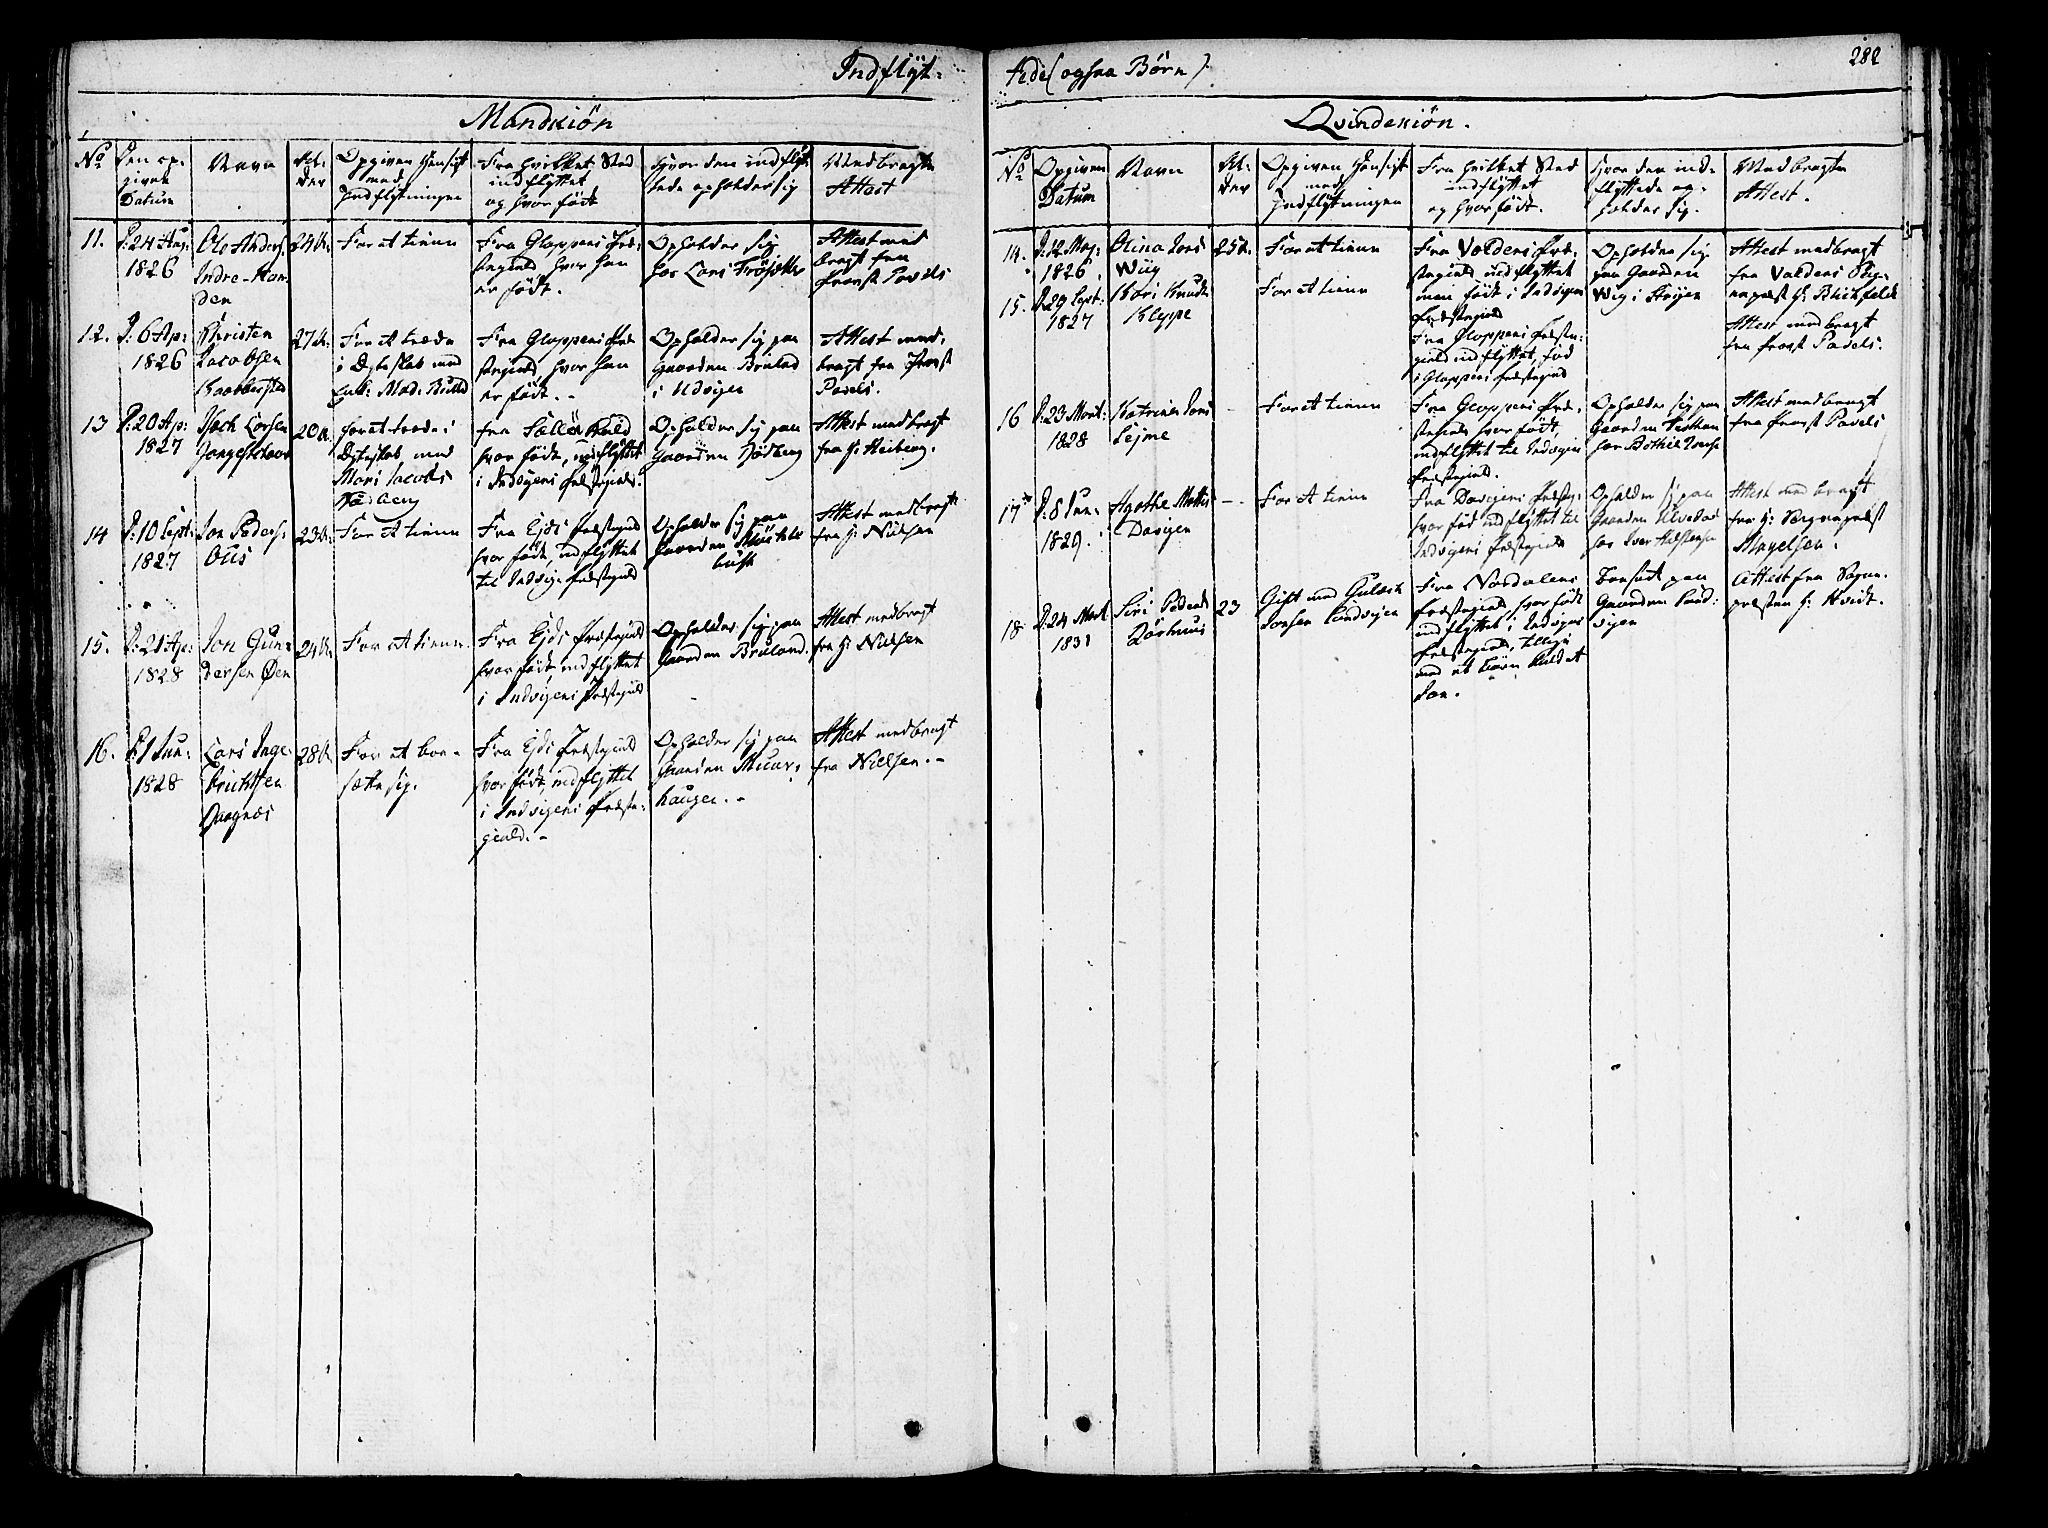 Indflyt-
tede (ogsaa Børn).
282
Mandkiøn
No
Den op-
given
Datum
Navn
Al-
der
Opgiven Hensigt
med
Indflytningen
Fra hvilket Sted
indflyttet
og hvor født
Hvor den indflyt-
tede opholder sig
Medbragte
Attest
11.
D: 24 Aug:
1826
Ole Anders:
Indre-
den
24 A.
For at tiene
Fra Gloppens Præ-
stegield, hvor han
er født.
Opholder sig
hos Lars
Attest med
bragt fra
Provst Pavels
12.
D: 6 Ap:
1826
Christen
Jacobsen
27 A.
For at træde
i Ægteskab med
Enk: Mad:
Fra Gloppens Præ
stegield, hvor han
er født. -
Opholder sig paa
Gaarden
i Udvigen
Attest med-
bragt fra Provst
Pavels.
13
D: 20 Ap:
1827
20 A.
for at træde i
Ægteskab med
Jacobs
Fra
hvor født, indflyttet
i Indvigens Præstegield.
Opholder sig paa
Gaarden
Attest medbragt
fra H: Heiberg.
14
D: 10 Sept:
1827
Jon Peders:
23 A.
For at tiene
Fra Ejds Præstegield
hvor født, indflyttet
til Indvig: Præstegield
Opholder sig paa
Gaarden
Attest medbragt
fra H: Nielsen
15.
D: 21 Ap:
1828
Jon Gun-
dersen Øen
24 A.
For at tiene.
Fra Ejds Præstegield
hvor født, indflyttet
i Indvigens Præstegield
Opholder sig paa
Gaarden Bruland.
Attest medbragt
fra H: Nielsen
16.
D: 1 Jun:
1828
Lars Inge-
brichtsen
28 A.
For at boe-
sætte sig.
Fra Ejds Præstegield
hvor født, indflyttet
i Indvigens Præste-
gield. -
Opholder sig paa
Gaarden
haugen. -
Attest medbragt
fra Nielsen. -
Qvindekiøn.
No
Opgiven
Datum
Navn
Al-
der
Opgiven Hensigt
med
Indflytningen
Fra hvilket Sted
indflyttet
og hvor født.
Hvor den ind-
flyttede op-
holder sig.
Medbragte
Attest.
14.
D: 12 May:
1826.
Olina Jons
Wiig
25 A.
For at tiene
Fra Voldens Præ-
stegield indflyttet
men født i Indvigens
Præstegield
Opholder sig
paa Gaarden
Wig i Stryen
Attest medbragt
fra Voldens Sog-
nepræst H:
15.
D: 29 Sept:
1827
Kari Knudts
Kleppe
For at tiene
Fra Gloppens Præste-
gield indflyttet, fød
i Gloppens Præstegield
Attest medbragt
fra Provst Pavels.
16
D: 23 Mart:
1828
Katrine Jons
Sejme
-
For at tiene
Fra Gloppens Præ-
stegield hvor født,
indflyttet til Indvigens
Præstegield.
Opholder sig paa
Gaarden
hos
Attest medbragt
fra Provst Pavels
17
D: 8 Jun:
1829.
Agethe
Davigen
-
For at tiene
Fra Davigens Præsteg:
hvor fød indflyttet til
Indvigens Præstegield
Opholder sig paa
Gaarden
hos Iver
Attest med bragt
fra H: Sognepræst
Magelsen.
18
D: 24 Mart
1831
Siri Peders
23
Gift med
Jonsen Sindvigen
Fra Nordalens
Præstegield, hvor født
indflyttet i Indvigens
Præstegield, tillige
med et Barn kaldet
Jon.
Bonsat paa
Gaarden Sind:
vigen
Attest fra Sogne-
præsten H: Kvidt.